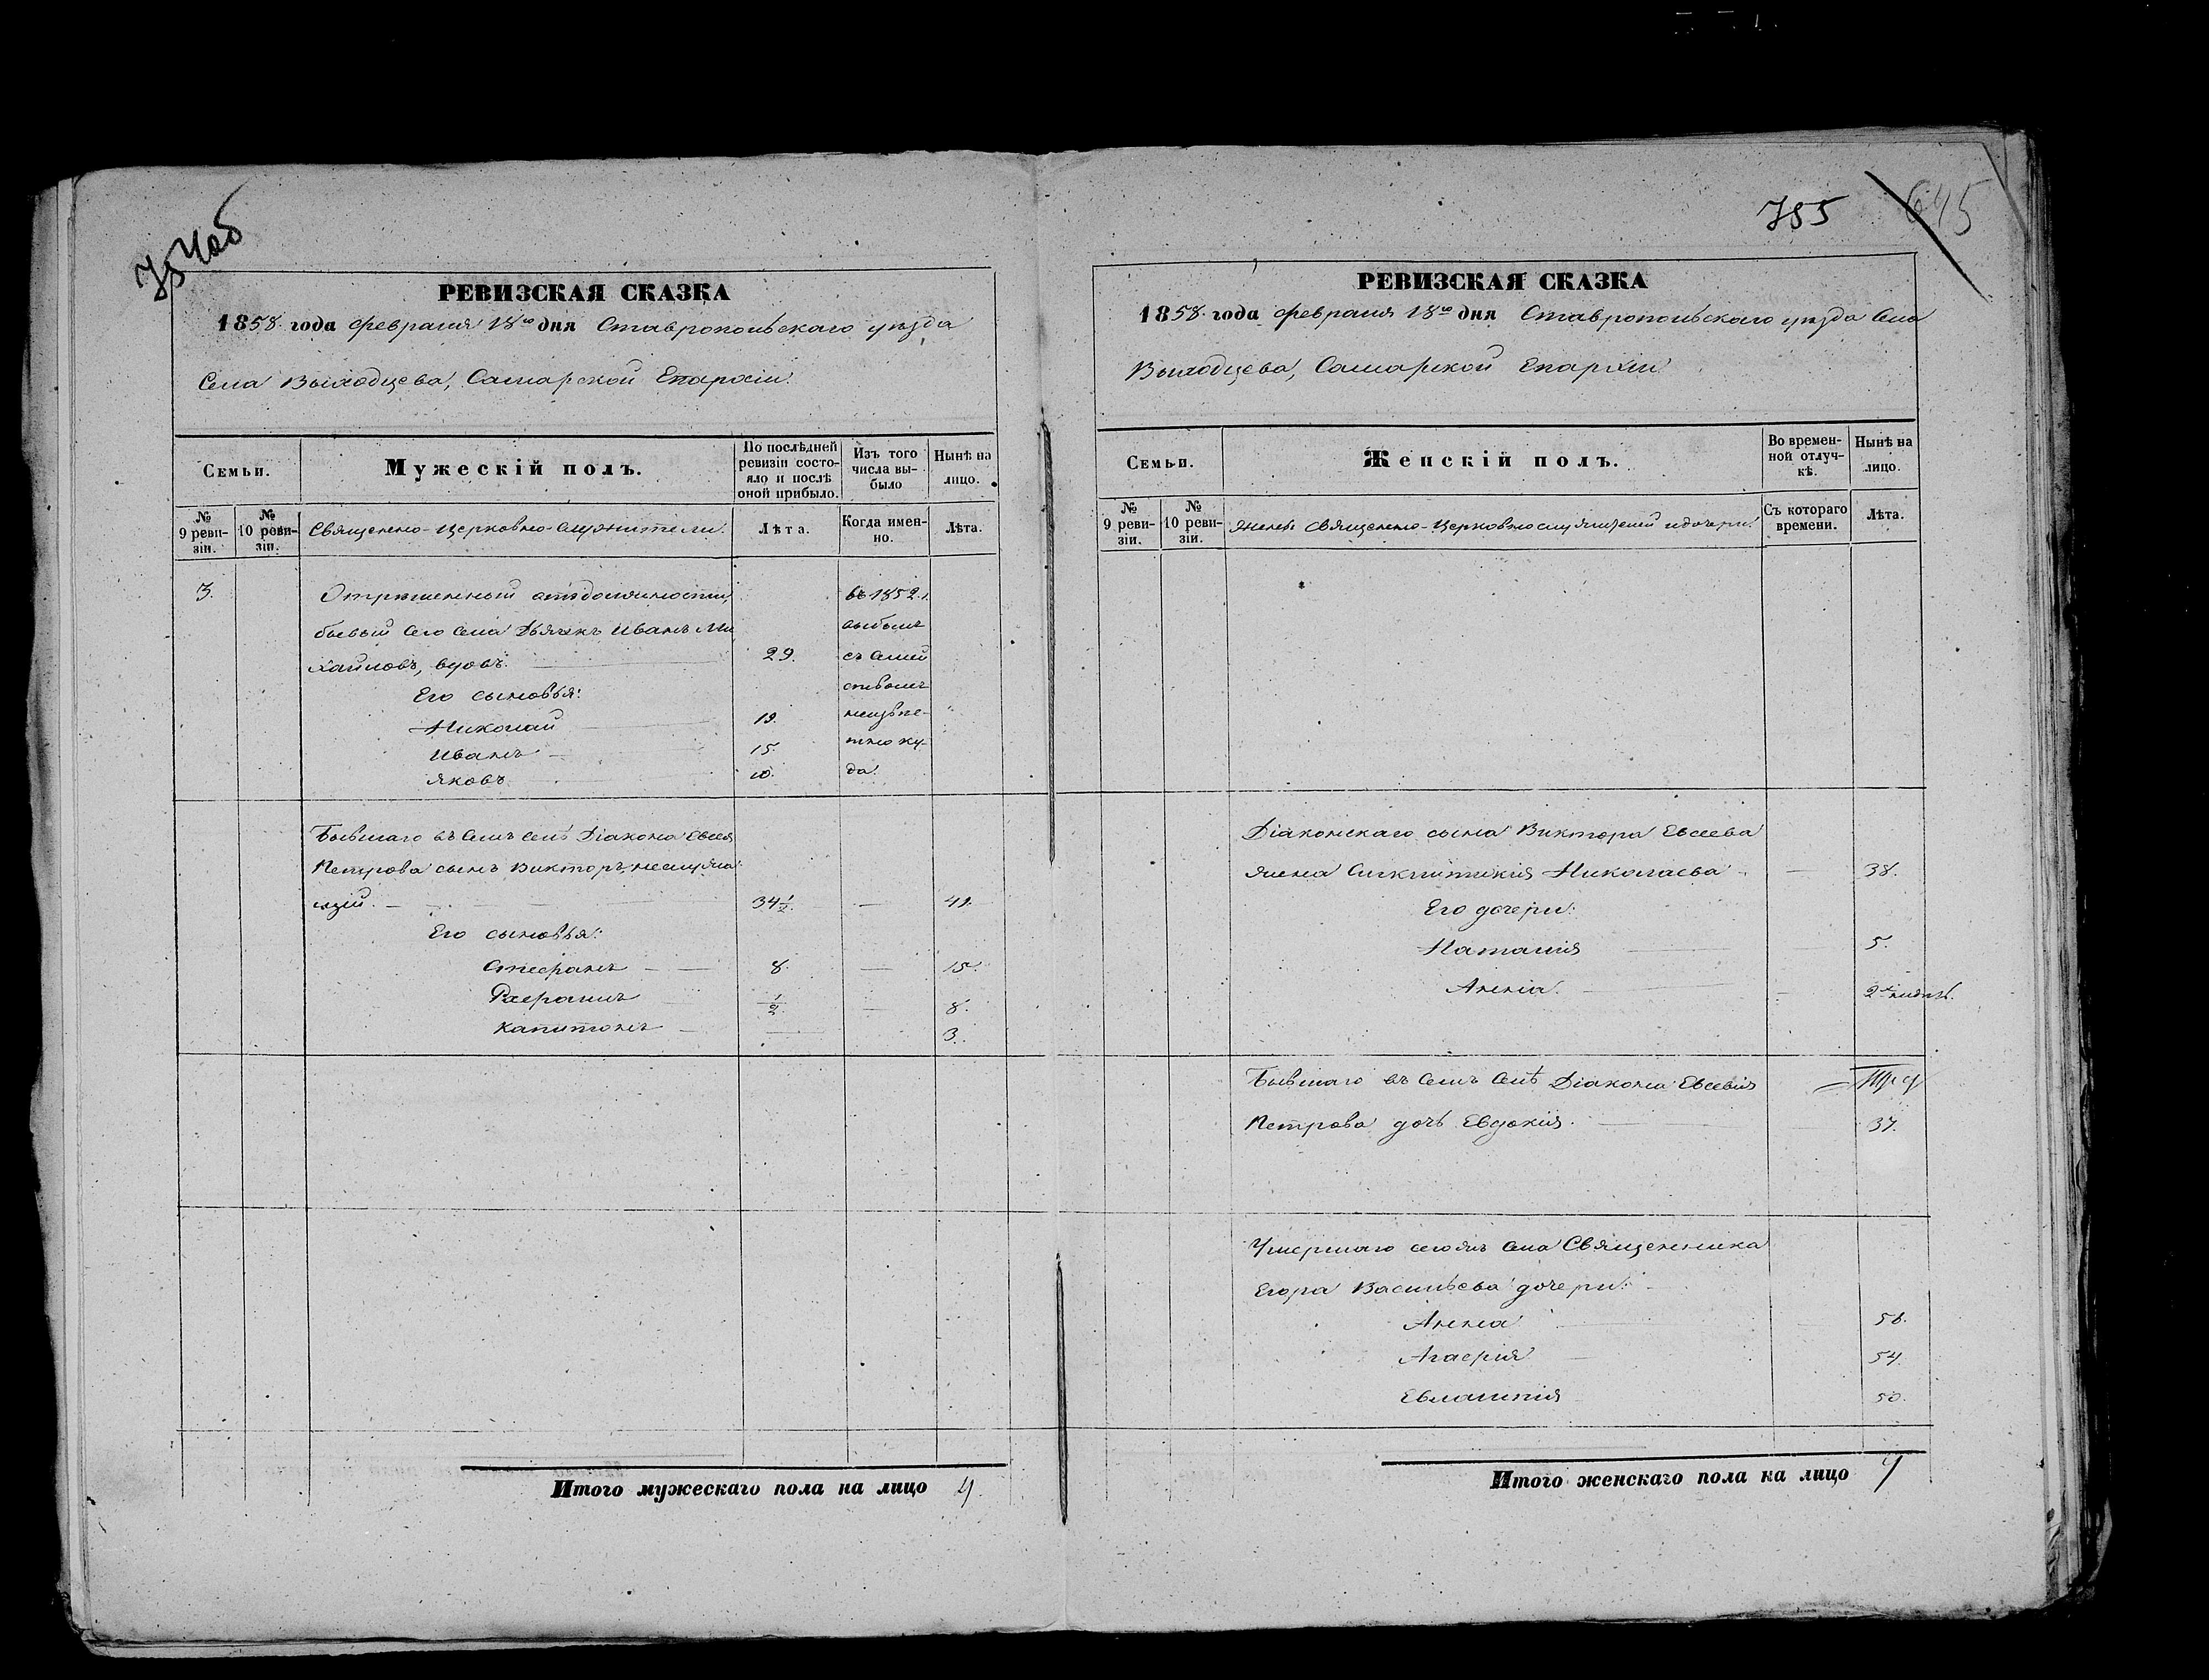 754 об
РЕВИЗСКАЯ СКАЗКА
1858 года февраля 18го дня Ставропольскаго уѣзда
Села Выходцева, Самарской Епархіи.
Семьи.
Мужескій полъ.
По послѣдней ревизіи состояло и послѣ оной прибыло.
Изъ того числа выбыло
Нынѣ на лицо.
№ 9 ревизіи.
№ 10 ревизіи.
Священно-церковно-служители.
Лѣта.
Когда именно.
Лѣта.
3. Отрѣшенный отъ должности, въ 1852 г.
бывый сего села Дьячекъ Иванъ Ми выбылъ
хайловъ, вдовъ. 29. съ семей
Его сыновья: ствомъ
Николай 19. неизвѣ-
Иванъ 15. стно ку-
Яковъ 10. да.
Бывшаго въ семъ селѣ Діакона Евсея
Петрова сынъ Викторъ, неслужа
щій. 34½. 41.
Его сыновья:
Стефанъ 8. 15.
Рафаилъ ½. 8.
Капитонъ 3.
Итого мужескаго пола на лицо 4.
755 645
РЕВИЗСКАЯ СКАЗКА
1858 года февраля 18го дня Ставропольскаго уѣзда Села
Выходцева, Самарской Епархіи
Семьи.
Женскій полъ.
Во временной отлучкѣ.
Нынѣ на лицо.
№ 9 ревизіи.
№ 10 ревизіи.
Жены Священно-Церковнослужителей и дочери.
Съ котораго времени.
Лѣта.
Діаконскаго сына Виктора Евсеева
жена Николаева 38.
Его дочери:
Наталія 5.
Анна. 2х недѣль.
Бывшаго въ семъ селѣ Діакона Евсевія
Петрова дочь Евдокія. 37.
Умершаго сегожъ села Священника
Егора Васильева дочери:
Анна 58.
Агафія 54.
Евлампія 50.
Итого женскаго пола на лицо 7